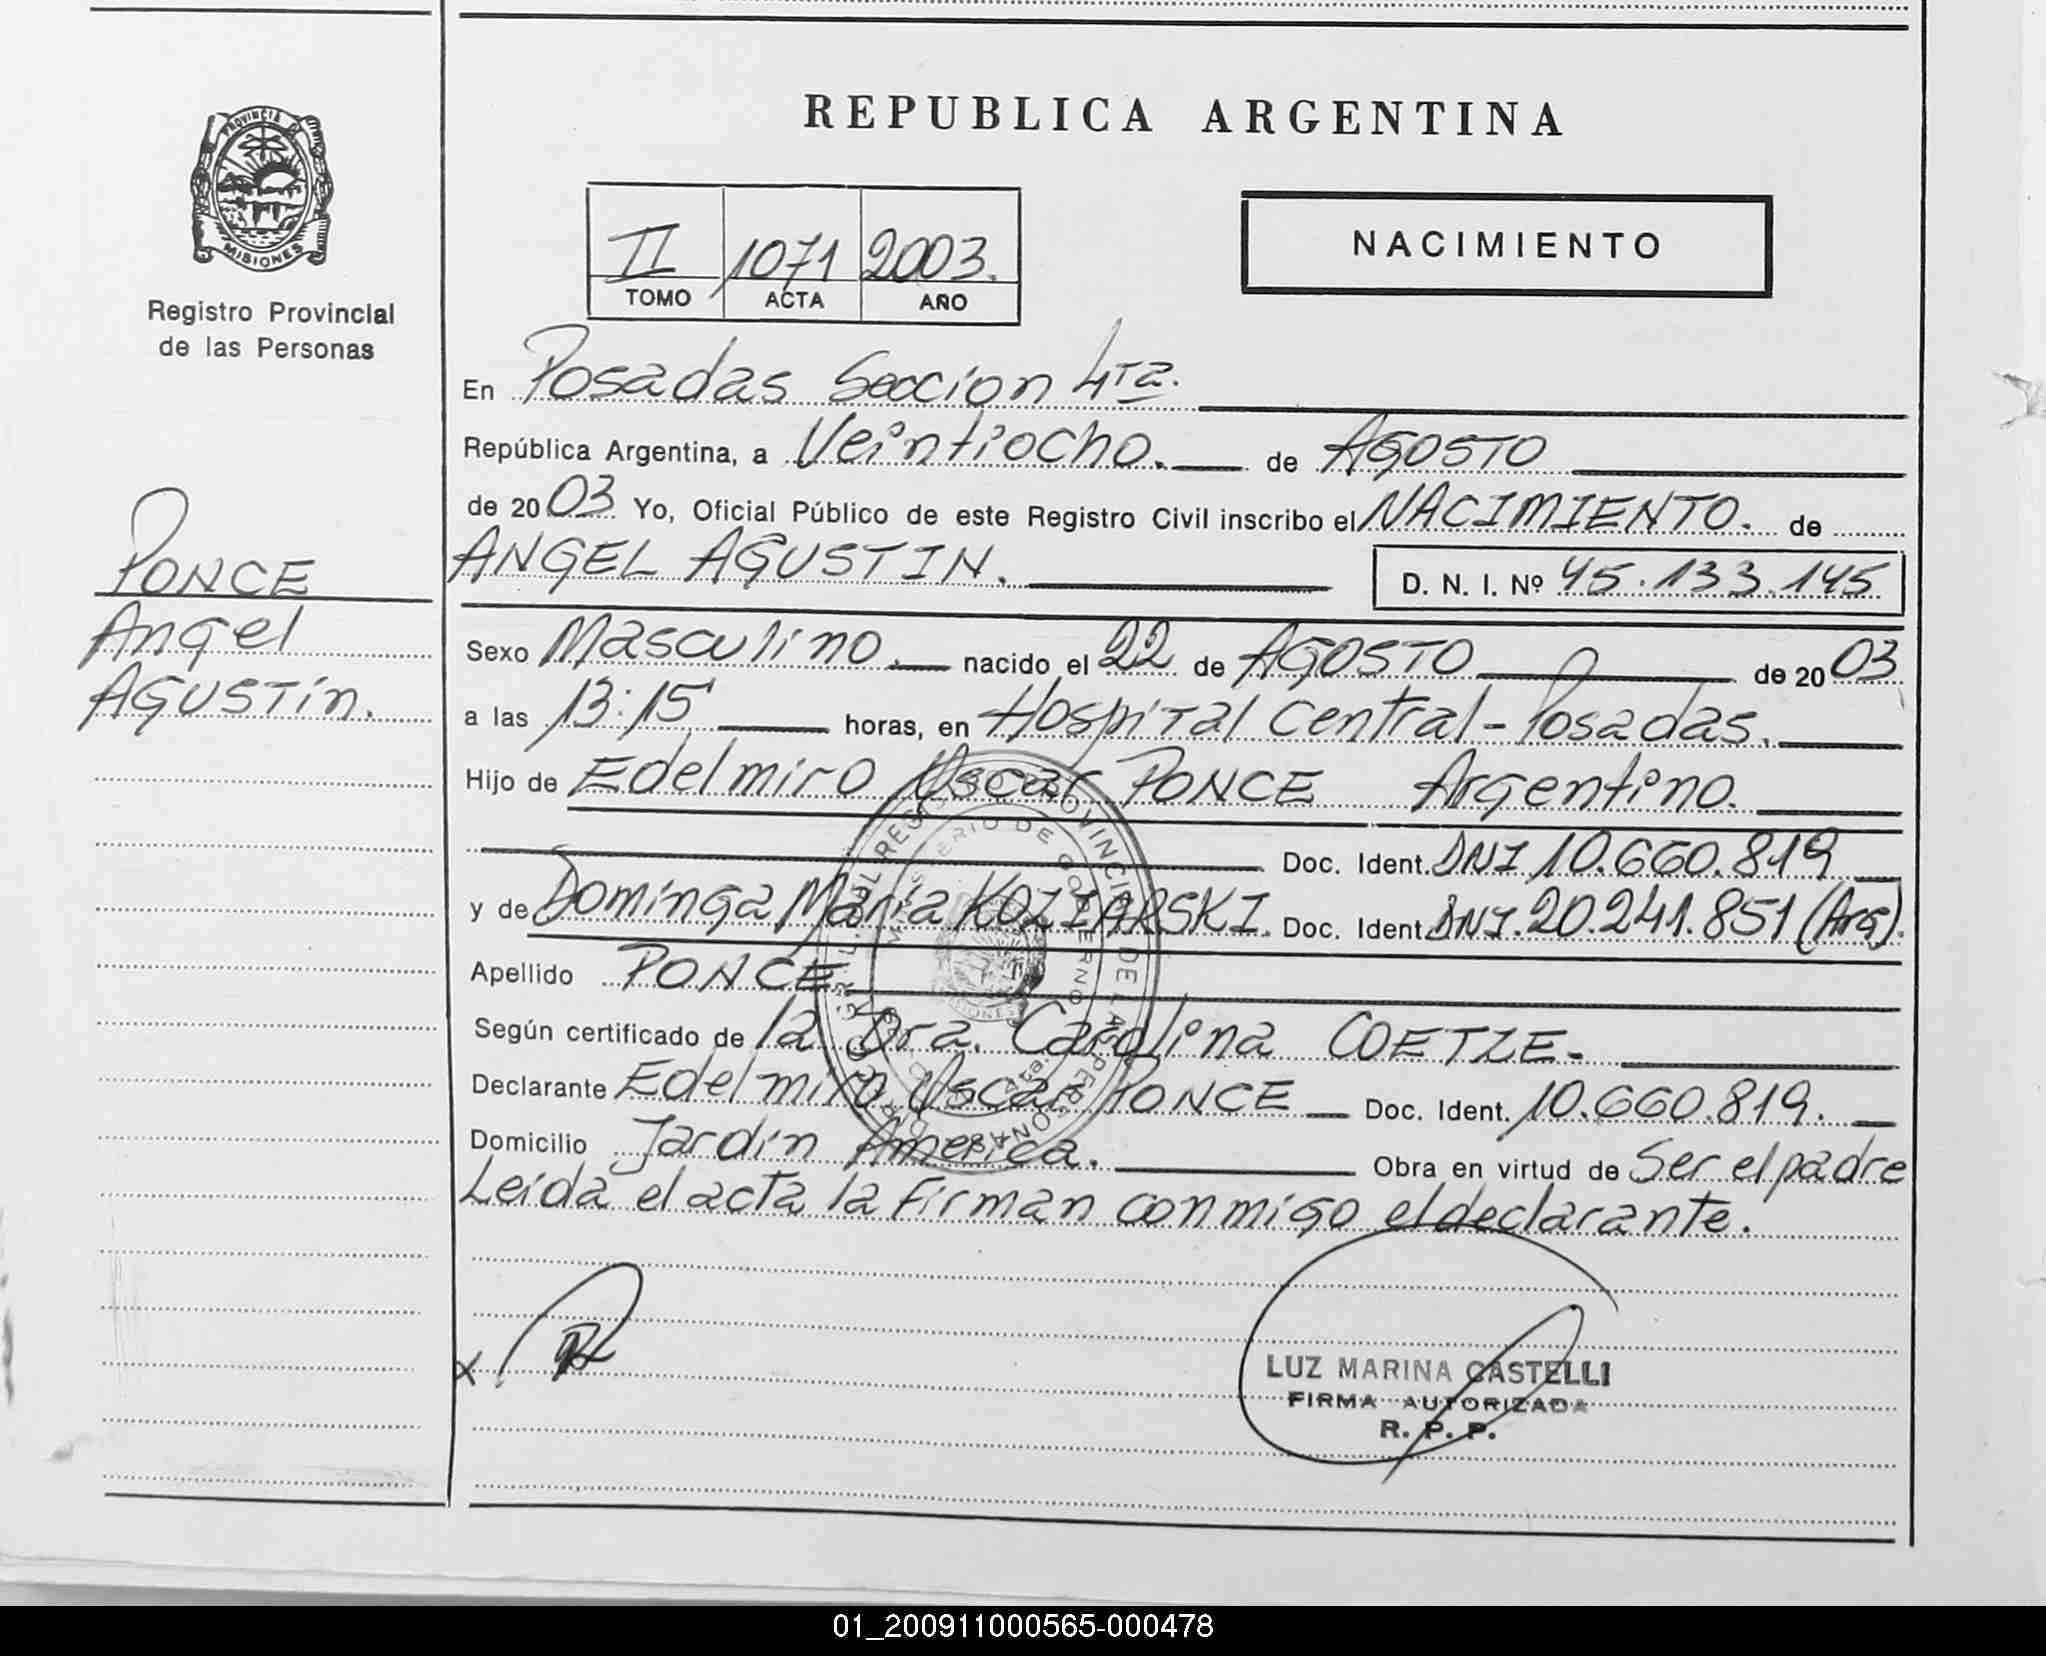 REPUBLICA ARGENTINA
PROVINCIA DE
MISIONES
Registro Provincial
de las Personas
II 1071 2003.
TOMO ACTA AÑO
NACIMIENTO
PONCE
Angel
AGUSTin.
En Posadas Seccion 4ta.
República Argentina, a Veintiocho. de AGOSTO
de 2003 Yo, Oficial Público de este Registro Civil inscribo el NACIMIENTO. de
ANGEL AGUSTIN. D. N. I. Nº 45.133.145
Sexo Masculino. nacido el 22 de AGOSTO de 2003
a las 13:15 horas, en Hospital Central - Posadas.
Hijo de Edelmiro Oscar PONCE Argentino.
Doc. Ident. DNI 10.660.819
y de Dominga Maria KOZIARSKI. Doc. Ident. DNI. 20.241.851 (Arg).
Apellido PONCE
Según certificado de la Dra. Carolina COETZE-
Declarante Edelmiro Oscar PONCE Doc. Ident. 10.660.819.
Domicilio Jardin America. Obra en virtud de Ser el padre
Leida el acta la Firman conmigo el declarante.
REGISTRO PROVINCIAL DE LAS PERSONAS
MINISTERIO DE GOBIERNO
X
LUZ MARINA CASTELLI
FIRMA AUTORIZADA
R. P. P.
01_200911000565-000478